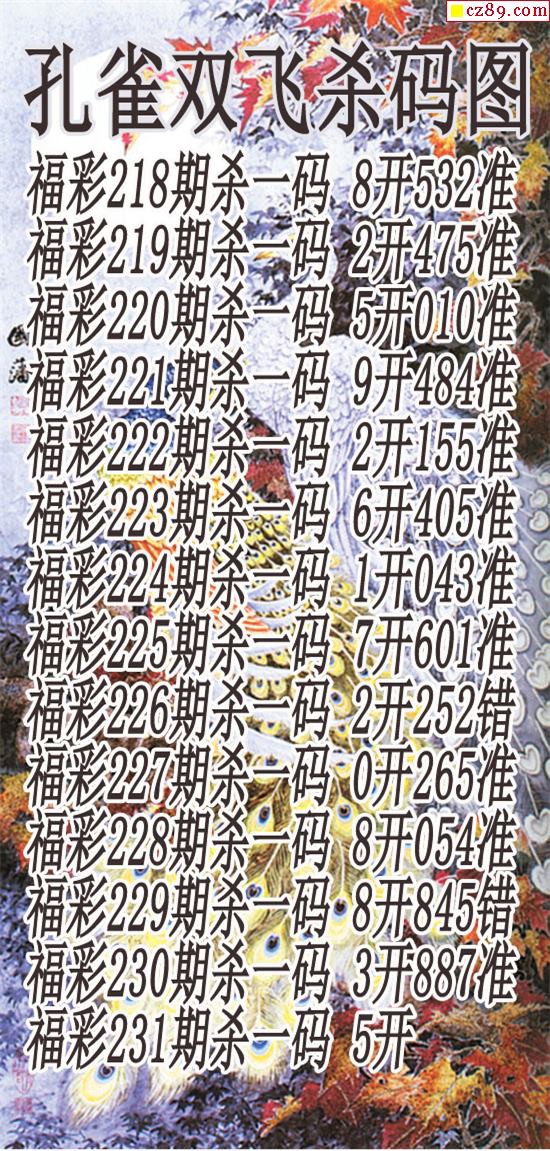 cz89.com
孔雀双飞杀码图
福彩218期杀一码 8开532准
福彩219期杀一码 2开475准
福彩220期杀一码 5开010准
福彩221期杀一码 9开484准
福彩222期杀一码 2开155准
福彩223期杀一码 6开405准
福彩224期杀一码 1开043准
福彩225期杀一码 7开601准
福彩226期杀一码 2开252错
福彩227期杀一码 0开265准
福彩228期杀一码 8开054准
福彩229期杀一码 8开845错
福彩230期杀一码 3开887准
福彩231期杀一码 5开